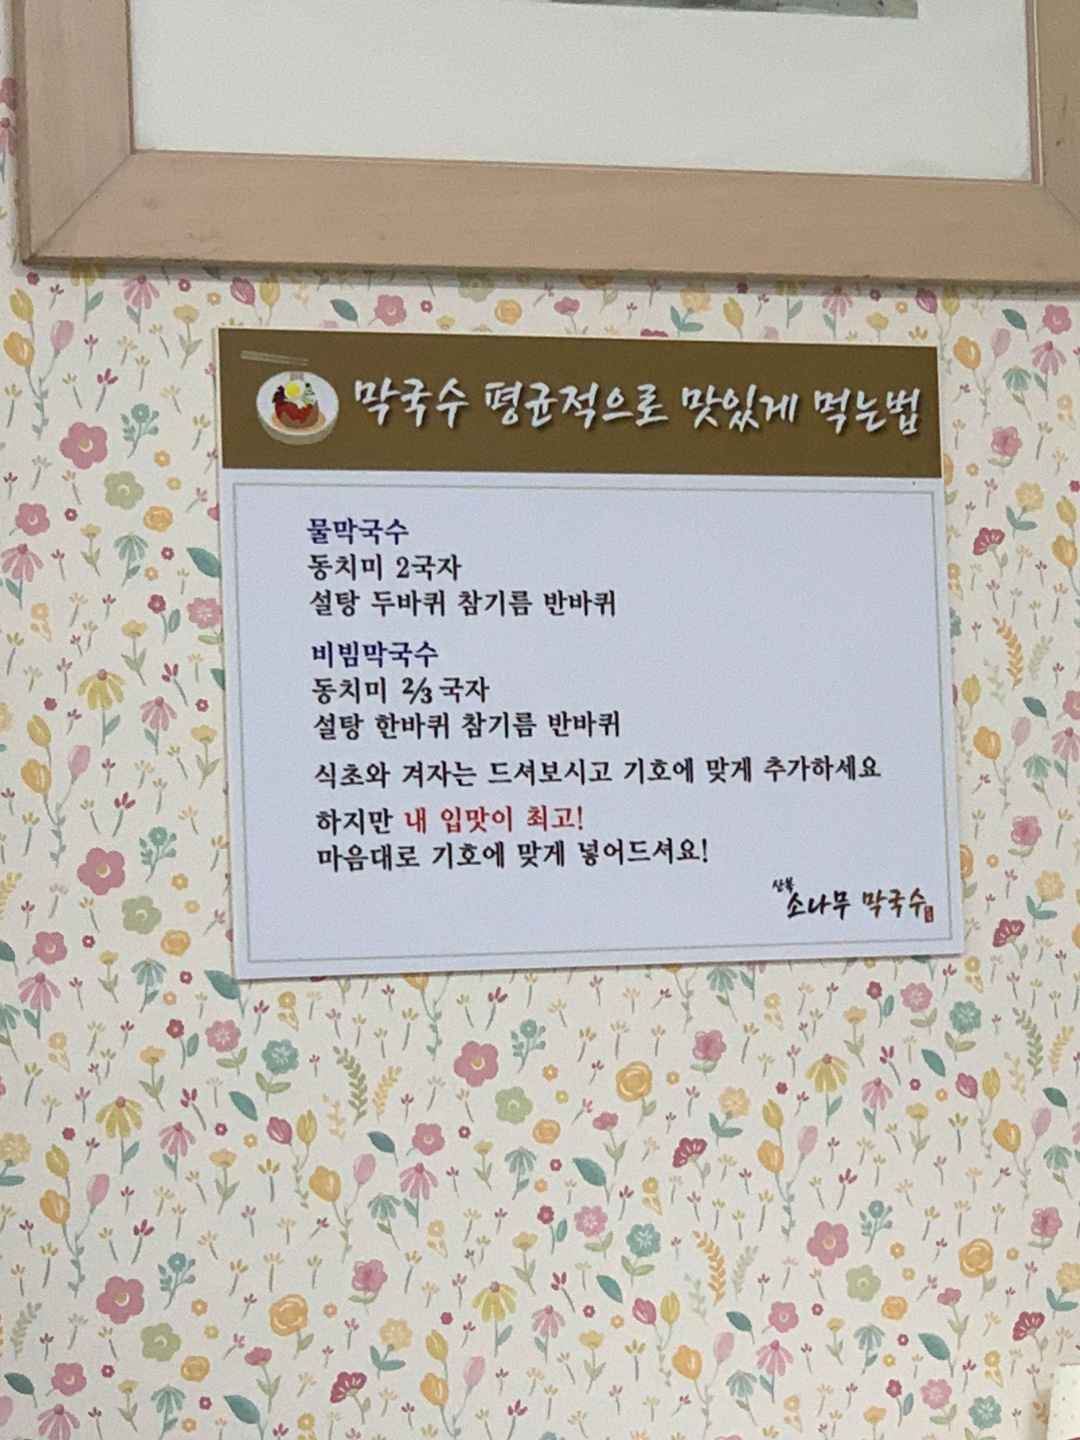 막국수 평균적으로 맛있게 먹는법
물막국수
동치미 2국자
설탕 두바퀴 참기름 반바퀴
비빔막국수
동치미 ⅔국자
설탕 한바퀴 참기름 반바퀴
식초와 겨자는 드셔보시고 기호에 맞게 추가하세요
하지만 내 입맛이 최고!
마음대로 기호에 맞게 넣어드셔요!
산북
소나무 막국수